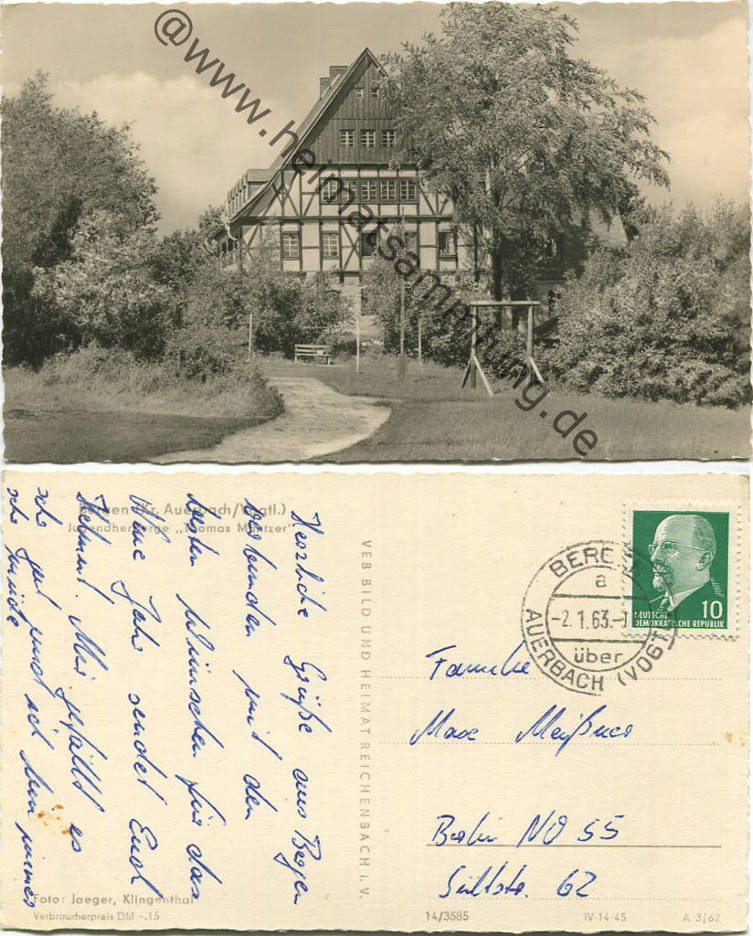 @www.heimatsammlung.de
Bergen (Kr. Auerbach/Vogtl.)
Jugendherberge „Thomas Müntzer"
Herzliche Grüße aus Bergen
verbunden mit den
besten Wünschen für das
Neue Jahr sendet Euch
Helmut. Mir gefällt es
sehr gut und ich bin immer
sehr müde
Foto: Jaeger, Klingenthal
Verbraucherpreis DM -.15
VEB BILD UND HEIMAT REICHENBACH i. V.
BERGEN
a
-2.1.63.-1
über
AUERBACH (VOGTL)
10
DEUTSCHE
DEMOKRATISCHE REPUBLIK
Familie
Max Meißner
Berlin NO 55
Sültstr. 62
14/3585
IV-14-45
A 3/62